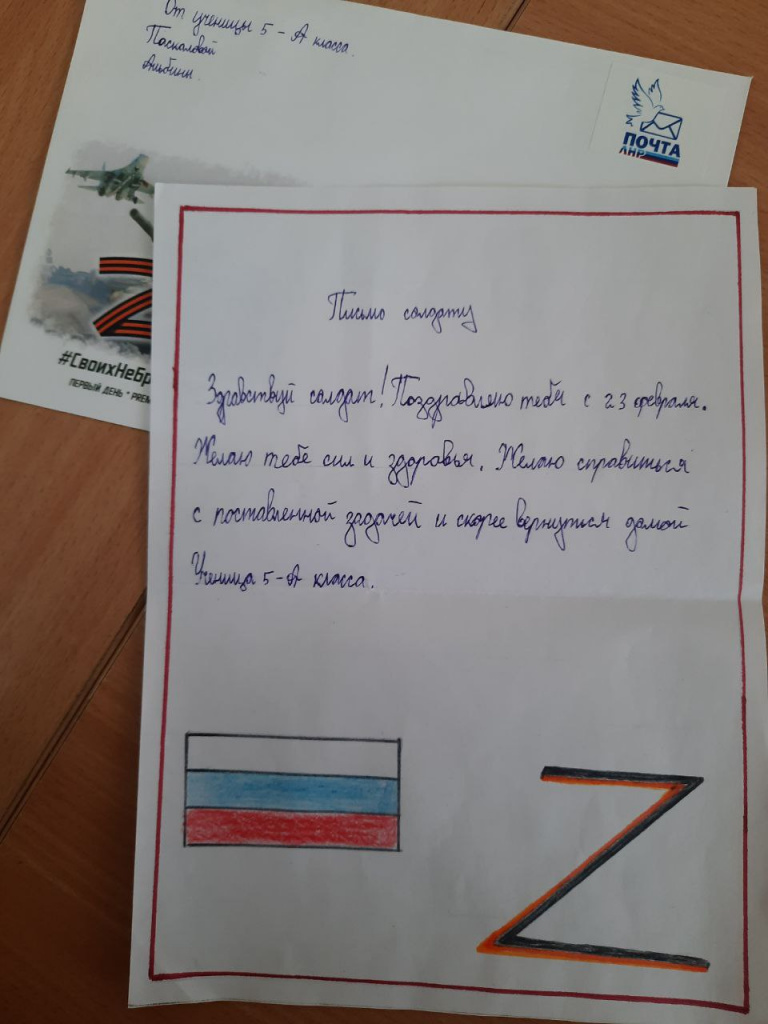 От ученицы 5 - А класса.
Паскаловой
Альбины.
ПОЧТА
ЛНР
Z
#СвоихНеБр
ПЕРВЫЙ ДЕНЬ * PREM
Письмо солдату
Здравствуй солдат! Поздравляю тебя с 23 февраля.
Желаю тебе сил и здоровья. Желаю справиться
с поставленной задачей и скорее вернуться домой
Ученица 5-А класса.
Z